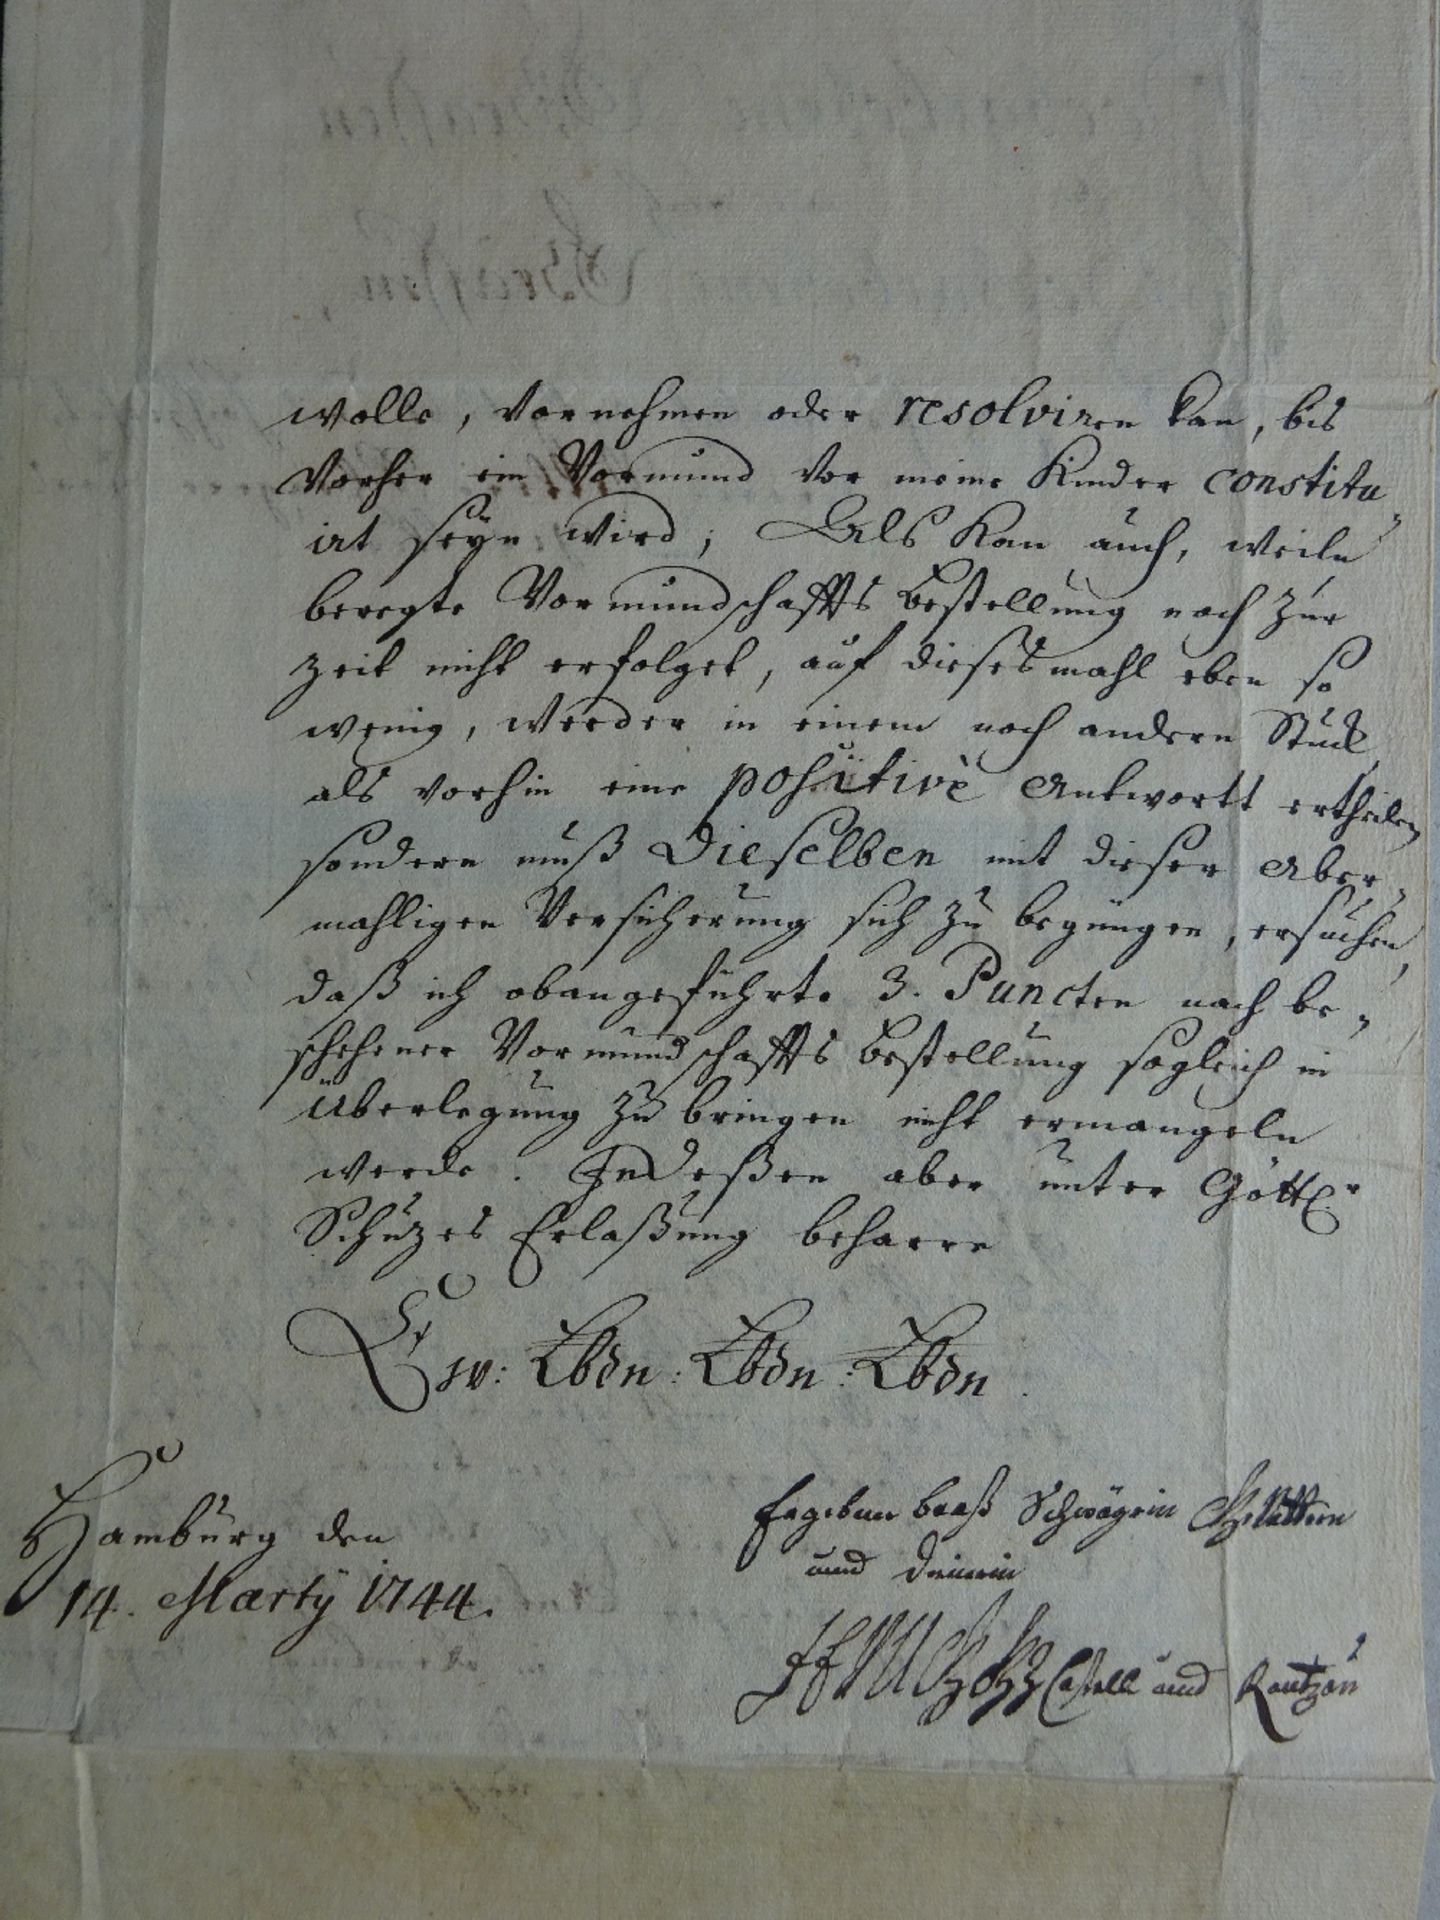 wolle, vornehmen oder resolviren kan, bis
vorher ein Vormund vor meine Kinder constitu-
irt seÿn wird; Als kan auch, weiln
beregte Vormundschaffts bestellung noch zur
zeit nicht erfolget, auf dieses mahl eben so
wenig, weeder in einem noch andern Stück
als vorhin eine positivè Antwortt ertheilen,
sondern muß Dieselben mit dieser aber-
mahligen Versicherung sich zu begnügen, ersuchen,
daß ich obangeführte 3. Puncten nach be-
schehener Vormundschaffts bestellung sogleich in
überlegung zu bringen nicht ermangeln
werde. Indeßen aber unter Göttl.r
Schuzes Erlaßung beharre
Ew: Lbdn: Lbdn: Lbdn
Hamburg den
14. Martÿ 1744.
Schwägrin
und Dienerin
Castell und Rantzau